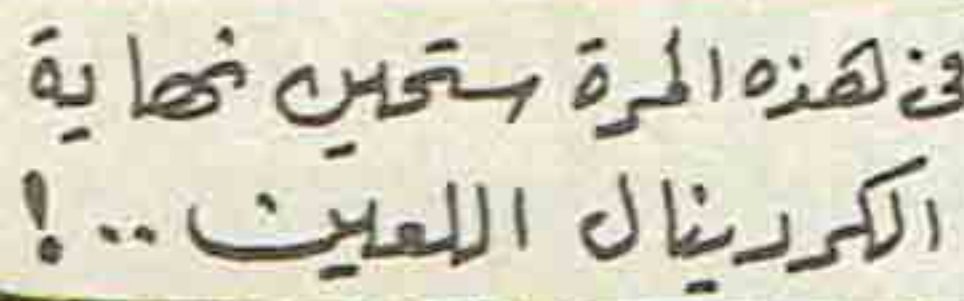 فى هذه المرة ستحين نهاية
الكردينال اللعين ..!